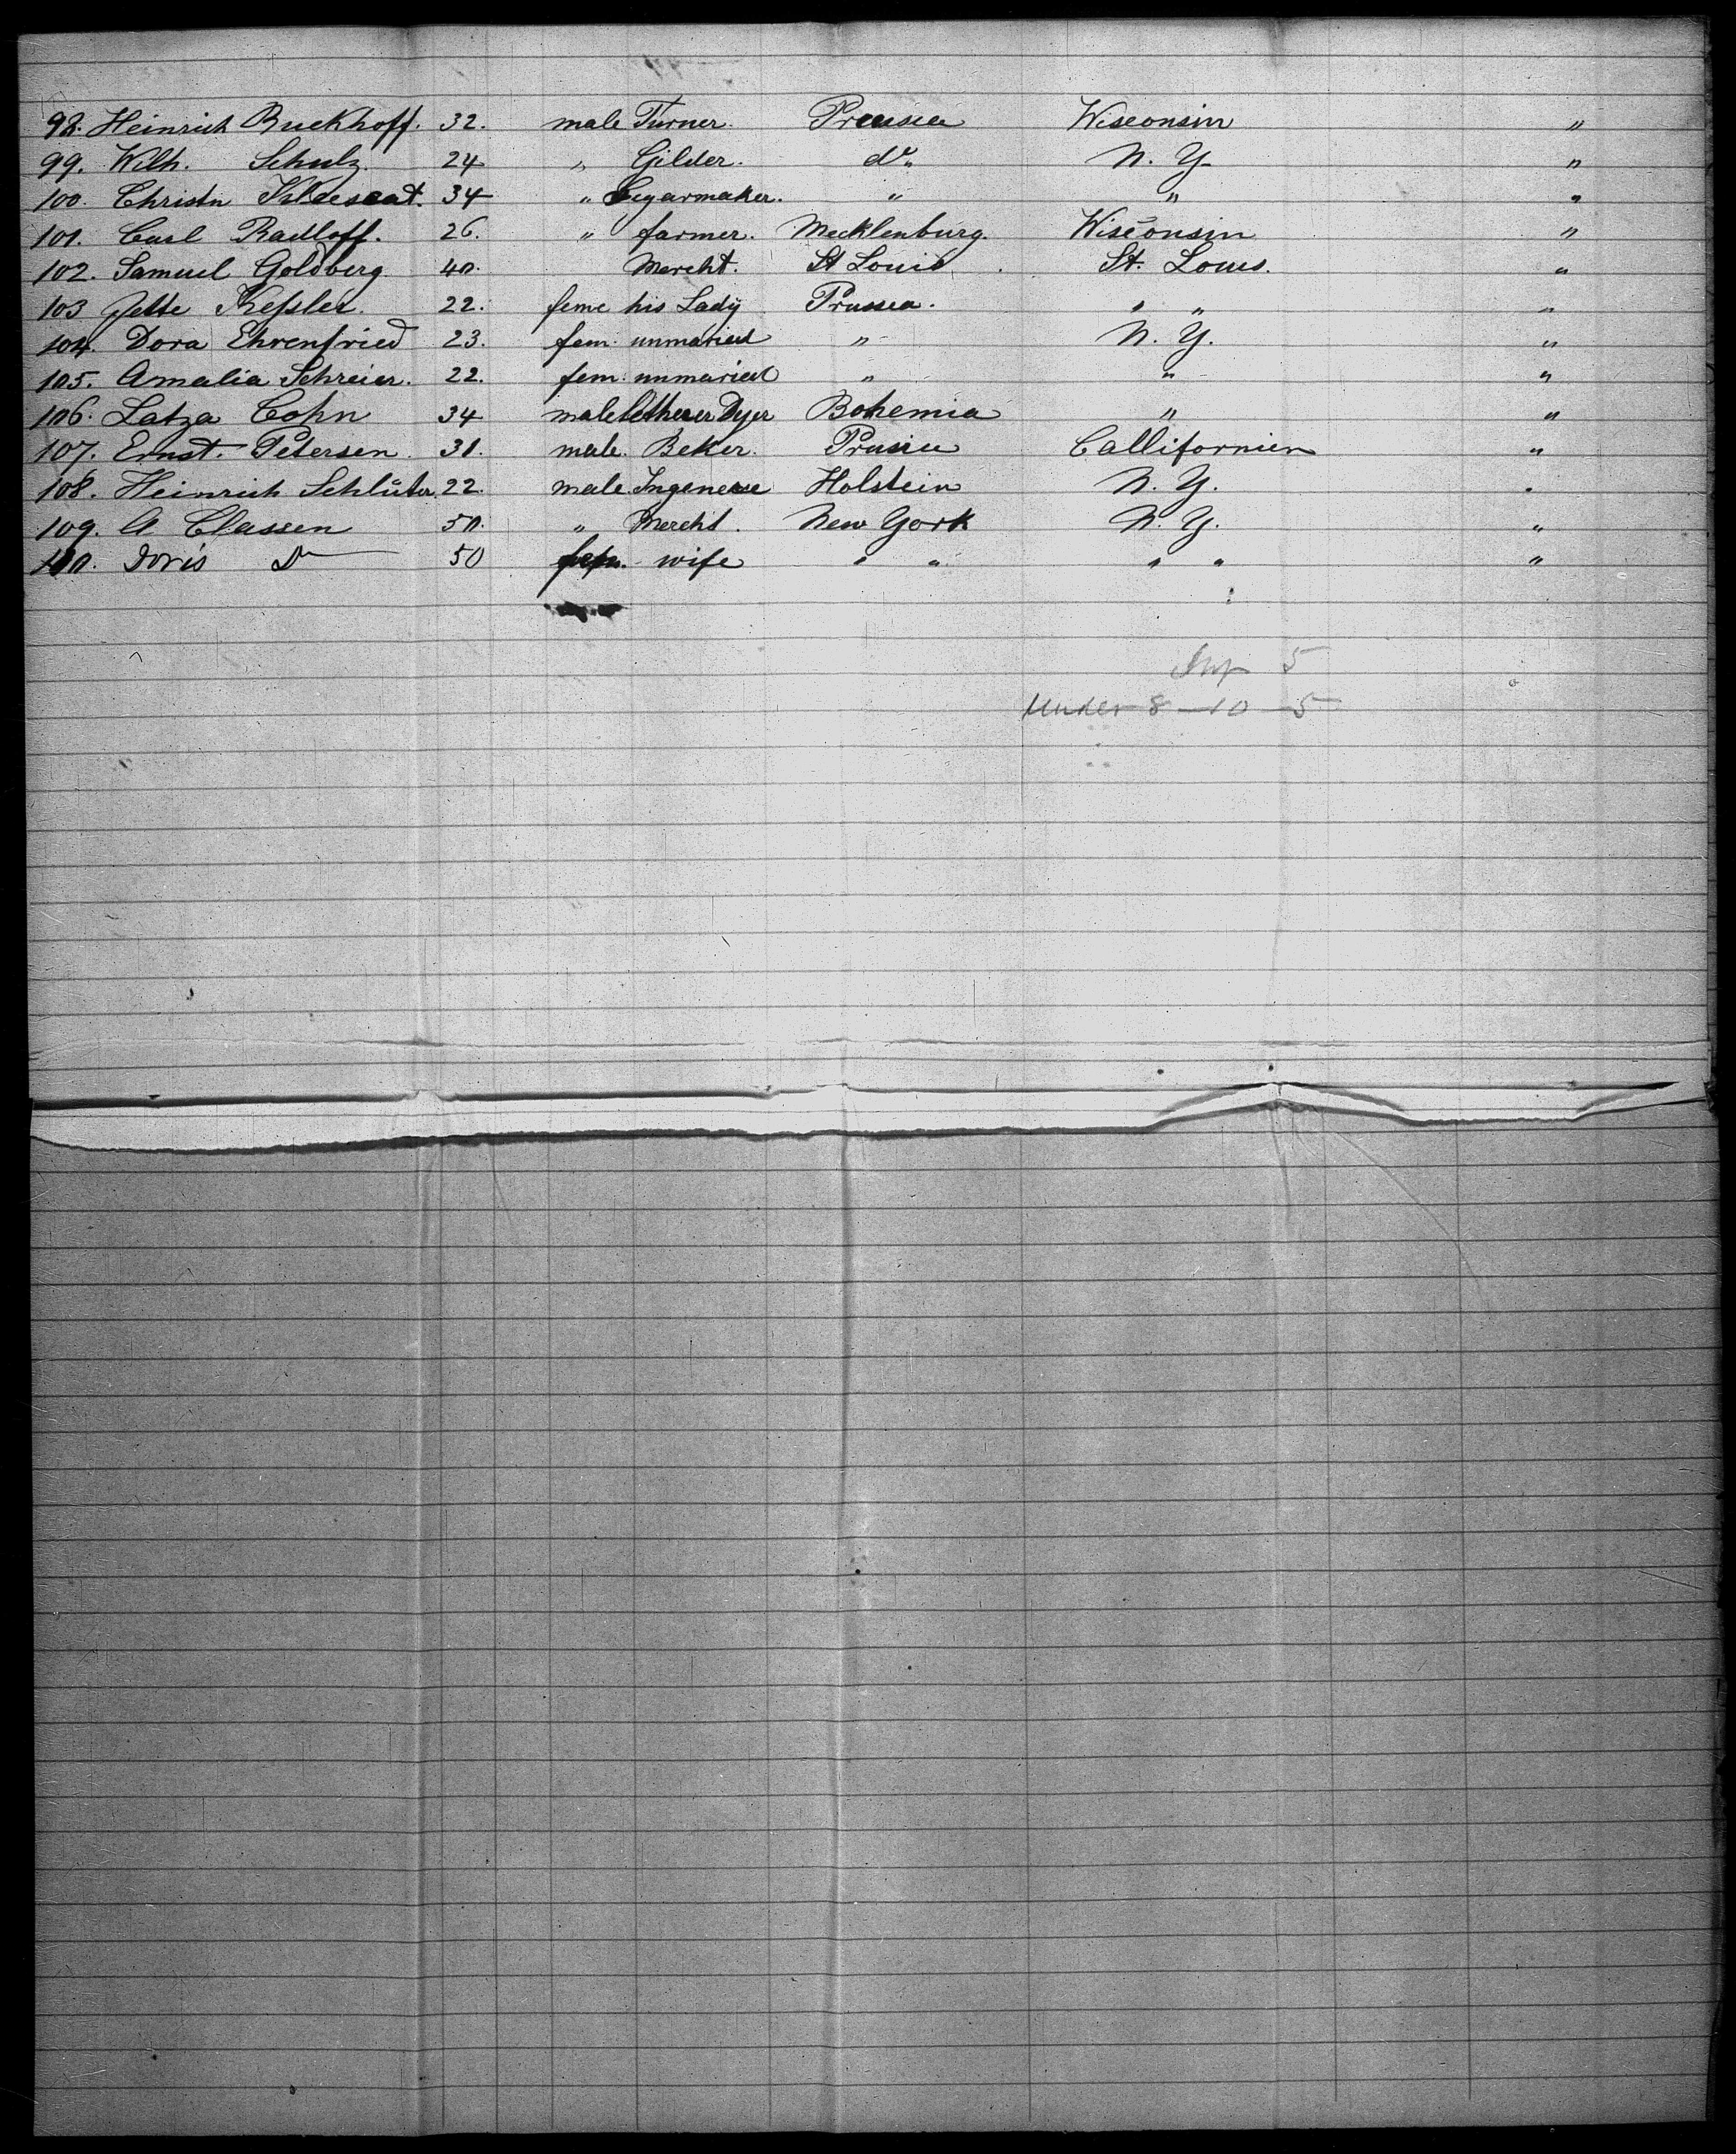 98. Heinrich Buckhoff. 32. male Turner. Preussia Wisconsin "
99. Wilh. Schulz. 24 " Gilder. do. N. Y. "
100. Christn 34 " Cegarmaker. " " "
101. Carl Radloff. 26. " farmer. Mecklenburg. Wisconsin "
102. Samuel Goldberg 40. Mercht. St Louis St. Louis. "
103 Jette Keſsler. 22. feme his Lady Prussia. " " "
104. Dora Ehrenfried 23. fem. unmaried " N. Y. "
105. Amalia Schreier. 22. fem. unmaried " " "
106. Latza Cohn 34 male Dyer Bohemia " "
107. Ernst. Petersen. 31. male. Beker. Prusia Callifornien "
108. Heinrich Schlüter. 22. male. Holstein N. Y. "
109. A Classen 50. " Mercht. New York N. Y. "
110. Doris Do 50 fem. wife " " " " "
5
Under 8 - 10 - 5